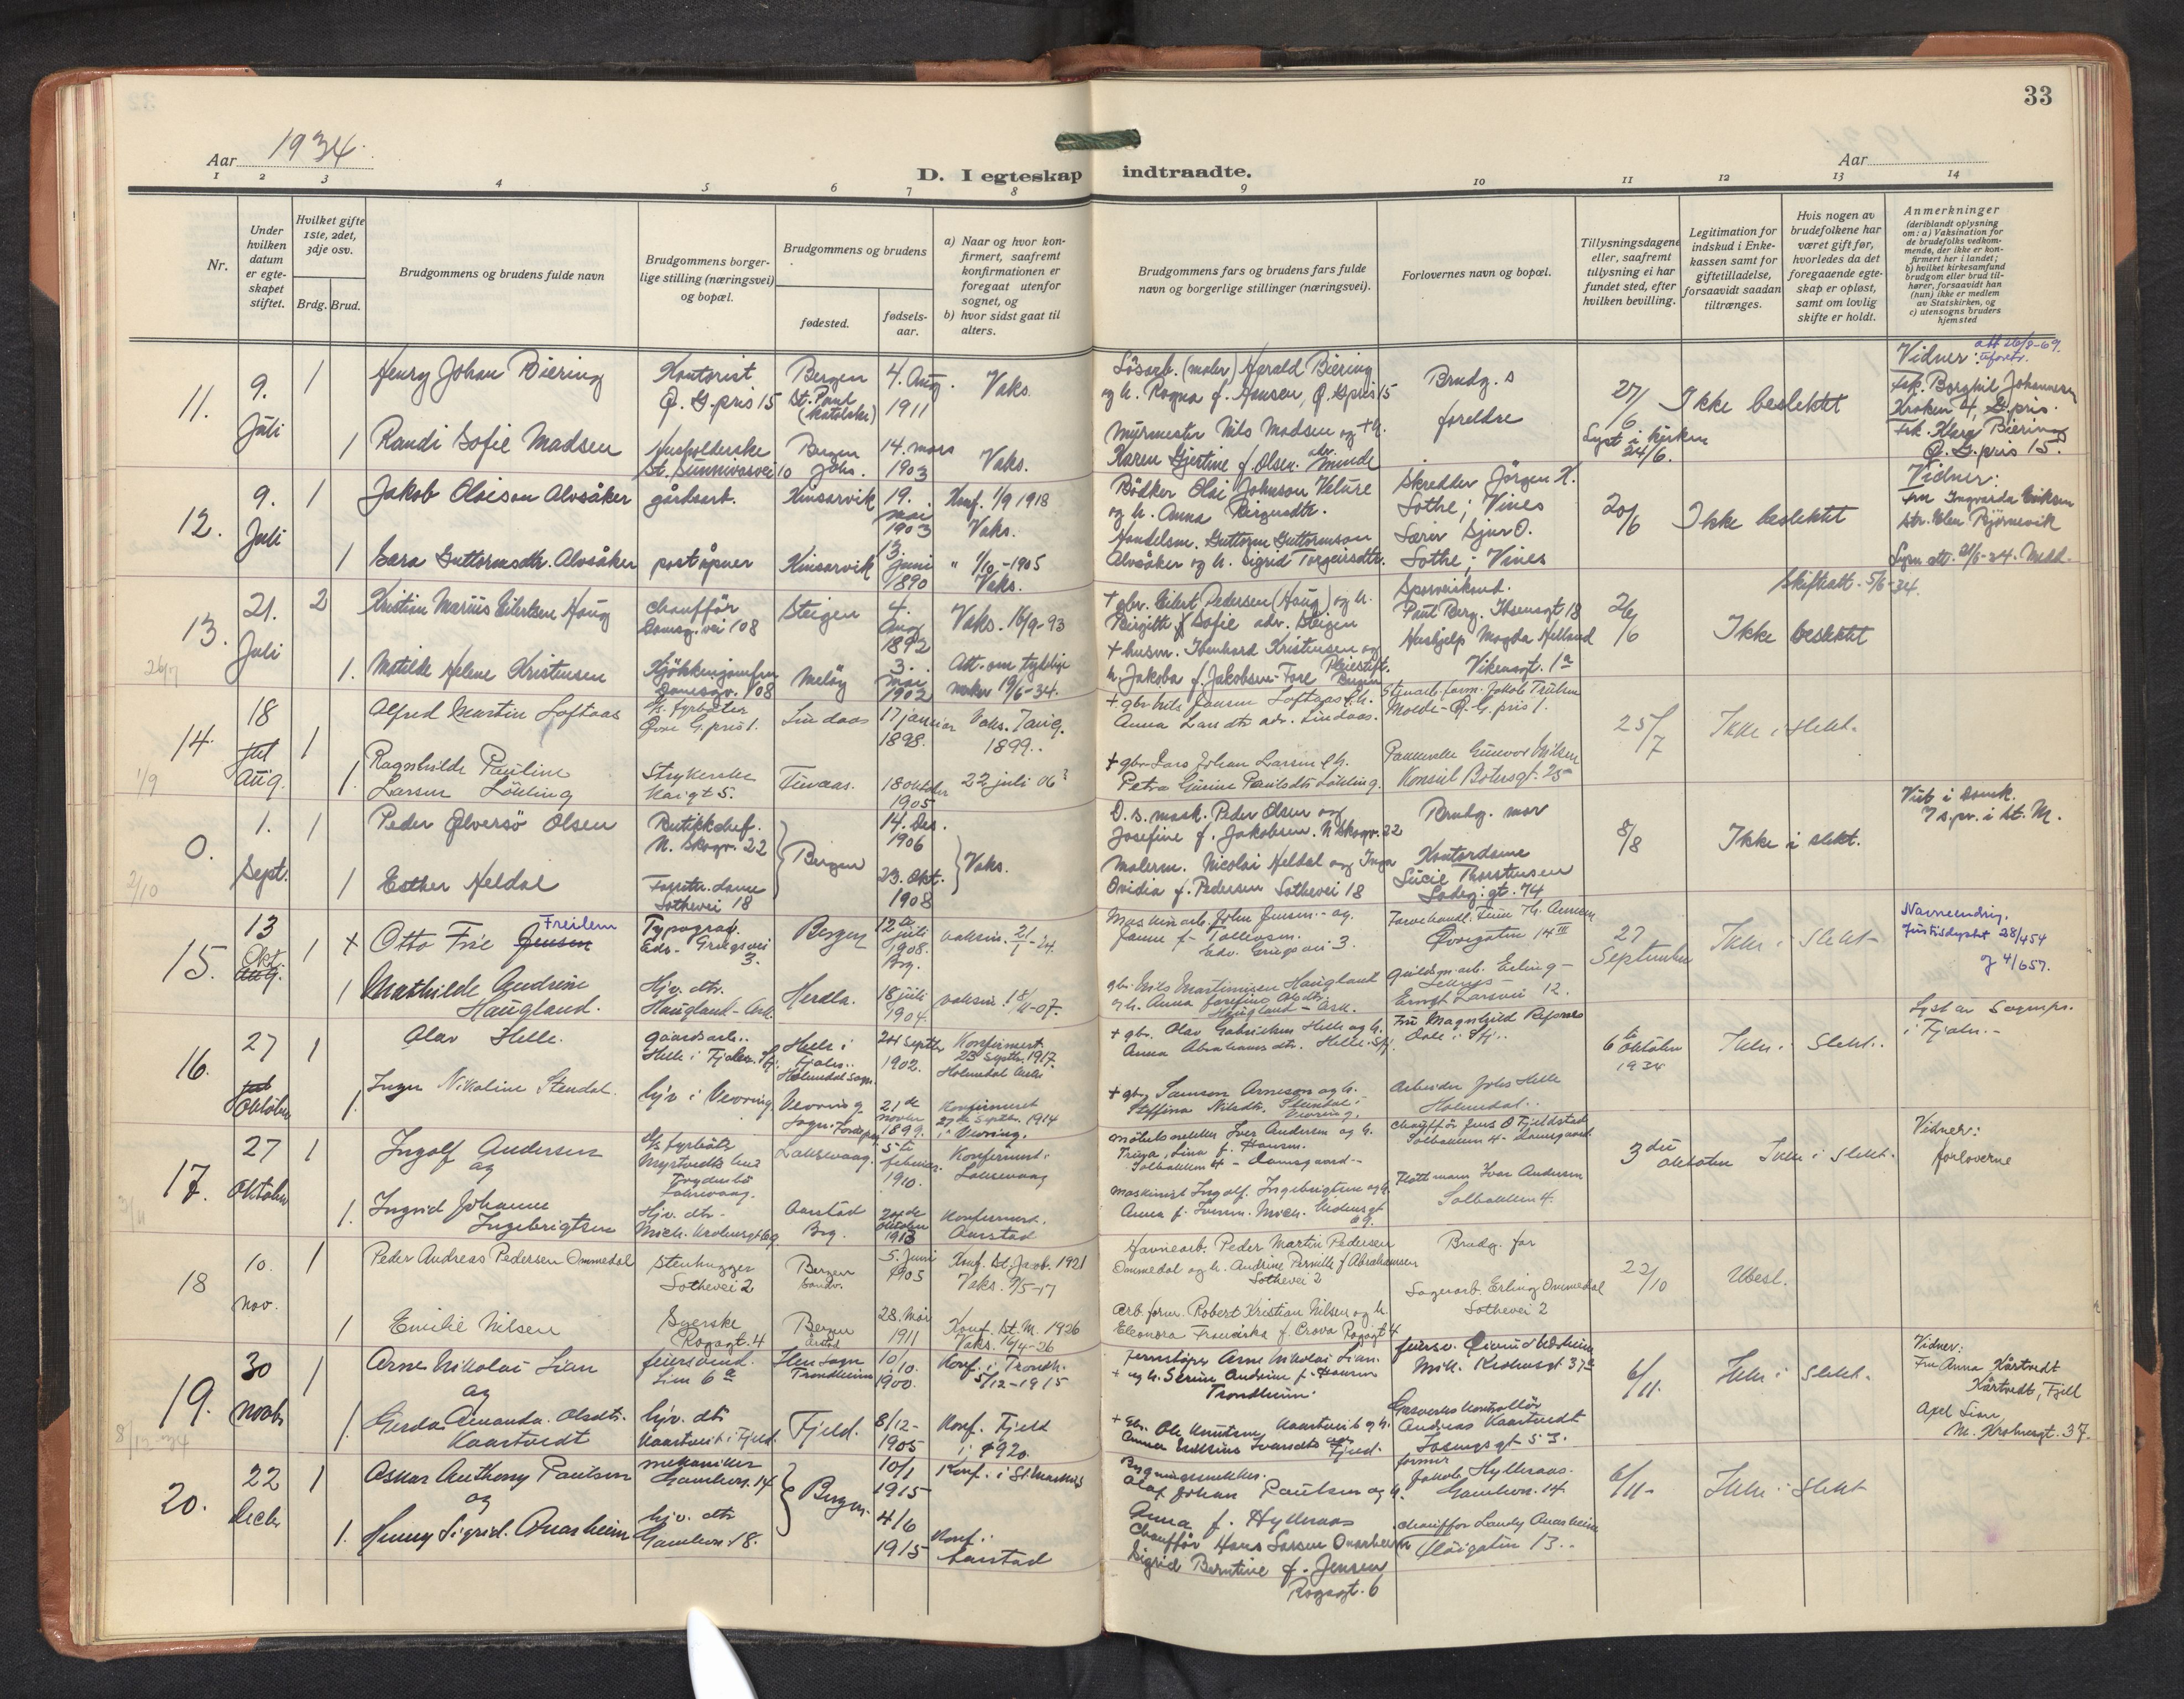 33
Aar 1934.
Aar
D. I egteskap indtraadte.
1 2 3 4 5 6 7 8 9 10 11 12 13 14
Nr.
Under hvilken datum er egteskapet stiftet.
Hvilket gifte 1ste, 2det, 3dje osv.
Brdg. Brud.
Brudgommens og brudens fulde navn
Brudgommens borgerlige stilling (næringsvei) og bopæl.
Brudgommens og brudens
fødested.
fødselsaar.
a) Naar og hvor konfirmert, saafremt konfirmationen er foregaat utenfor sognet, og
b) hvor sidst gaat til alters.
Brudgommens fars og brudens fars fulde navn og borgerlige stillinger (næringsvei).
Forlovernes navn og bopæl.
Tillysningsdagene eller, saafremt tillysning ei har fundet sted, efter hvilken bevilling.
Legitimation for indskud i Enkekassen samt for giftetilladelse, forsaavidt saadan tiltrænges.
Hvis nogen av brudefolkene har været gift før, hvorledes da det foregaaende egteskap er opløst, samt om lovlig skifte er holdt.
Anmerkninger
(deriblandt oplysning om: a) Vaksination for de brudefolks vedkommende, der ikke er konfirmert her i landet;
b) hvilket kirkesamfund brudgom eller brud tilhører, forsaavidt han (hun) ikke er medlem av Statskirken, og
c) utensogns bruders hjemsted
11. 9. Juli 1
Henry Johan Biering
Kontorist
Ø. G.pris 15
Bergen
St. Paul
(katolske)
4. Aug.
1911
Vaks.
Løsarb. (maler) Harald Biering
og h. Ragna f. Hansen, Ø. Gpris 15
Brudg.s
foreldre
27/6
Lyst i kirken
24/6.
Ikke beslektet
Vidner:
Frk. Borghil Johannesen
Kroken 4, G.pris.
Biering
Ø. G.pris 15.
1 Randi Sofie Madsen
Husholderske
St. Sunnivasvei 10
Bergen
Johs.
14. mars
1903
Vaks.
Murmester Nils Madsen og + h.
Karen Gjertine f. Olsen. adr. Minde
12. 9. Juli 1
Jakob Olaison Alvsåker
gårdsarb.
Kinsarvik
19. mai
1903
Konf. 1/9 1918
Vaks.
Bødker Olai Johnson Velure
og h. Anna
Skredder Jørgen K.
Sothe; Vines
20/6
Ikke beslektet
Vidner:
fru Ingvarda Eriksen
1 Sara Guttormsdtr. Alvsåker
poståpner
Kinsarvik
13. juni
1890
" 1/10-1905
Vaks.
Handelsm. Guttorm Guttormson
Alvsåker og h. Sigrid Torgeirsdtr.
Lærer Sjur O.
Sothe; Vines
13. 21. Juli 2
Kristian Marius Eilertsen Haug
chauffør
Damsg.vei 108
Steigen
4. Aug
1892
Vaks. 16/9-93
+ gbr. Eilert Pedersen (Haug) og h.
Birgitte Sofie adr. Steigen
Sporveiskond.
Paul Berg. Ibsensgt 18
26/6
Ikke beslektet
Skifteatt. 5/6-34.
26/7
1. Matilde Helene Kristensen
Kjøkkenjomfru
Damsgv. 108
Meløy
3. mai
1902
Att. om tydelige
merker 19/6-34.
+ husm. Ibenhard Kristensen og
h. Jakoba f. Jakobsen-Fore Pleiestift. Bergen
Hushjelp Magda Helland
Vikensgt. 1a
14. 18 Aug. 1
Alfred Martin Loftaas
fyrbøter
Øvre G.pris 1.
Lindaas
17 januar
1898.
Vaks. 7 aug.
1899..
+ gbr. Nils Jansen Loftaas & h.
Anna Larsdtr. adr. Lindaas.
Molde - Ø. G.pris 1.
25/7
Ikke i slekt.
1/9
1. Ragnhilde Pauline
Larsen
Strykerske
5.
18 oktober
1905
22 juli 06
+ gbr. Lars Johan Larsen & h.
Petra
Konsul Børsgt. 25
0. 1. Sept. 1
Peder Ølversø Olsen
Butikkchef.
N. Skogv. 22
Bergen
14. Des.
1906
Vaks.
D.s. mask. Peder Olsen og
Josefine f. Jakobsen. N Skogv. 22
Brudg. mor
8/8
Ikke i slekt.
Vist i Domk.
7 s.pr. i St. M.
2/10
1 Esther Heldal
Forretn. dame
Sothevei 18
23. Okt.
1908
Malerm. Nicolai Heldal og Inga
Ovidia f. Pedersen Sothevei 18
Kontordame
Lucie Thorstensen
Ladeg.gt. 74
15. 13 Okt. 1 x
Otto Frie Jensen Freilem
Typograf.
Edv. Griegsvei 3.
Bergen
12te juli
1908.
Brg.
vaksin. 21/1-24.
Maskinarb. John Jensen - og
f. Tollevsen.
Edv. Griegsvei 3.
Øvregaten 14 III
27 September
Ikke i slekt-
Navneendring.
Justisdept 28/454
4/657.
1 Mathilde Andrine
Haugland.
Hjv. dtr.
Haugland-Ask.
Herdla.
18 juli
1904.
vaksin. 18/4-07.
gbr. Nils Martinusen Haugland
og h. Anna Josefine
Haugland - Ask.
Ernst Larsvei 12.
16. 27 Oktober 1
Olav Helle.
gaardsarb..
Helle i Fjaler. Sfj.
Helle i
Fjaler..
Holmedal sogn
24 Septbr
1902.
Konfirmert.
23 Septbr. 1917.
Holmedal kirke
+ gbr. Olav Gabrielsen Helle og h.
Anna Abrahamsdtr. Helle. Sfj.
Fru Magnhild
Dale i Sfj..
6te Oktober
1934
Ikke i slekt..
Lyst av Sognepr.
i Fjaler.-
1. Inga Nikoline Stendal.
hjv i Vevring
Vevring
21de novbr
1899.
Konfirmert
27de Septbr. 1914
i Vevring.
+ gbr. Samson Arneson og h.
Steffina Nilsdtr. Steindal i
Vevring.
Arbeider Johs Helle
Holmedal..
17. 27 Oktober 1
Ingolf Andersen
og
fyrbøter
Laksevaag.
5te februar.
1910.
Konfirmert.
Laksevaag
Møbelsnekker Iver Andersen og h.
f. Hansen.
Solbakken 4 - Damsgaard -
chauffør Jens O Fjeldstad
Solbakken 4 - Damsgaard
3die Oktober
Ikke i slekt.
Vidner:
forloverne
1. Ingrid Johanne
Ingebrigtsen
Hjv. dtr.
Mich. Krohnsgt 69
Aarstad
Brg.
20de Oktober
1913
Konfirmert.
Aarstad
Maskinist Ingolf. Ingebrigtsen og h.
Anna f. Iversen. Mich. Krohnsgt
69.
Iver Andersen
Solbakken 4.
18 10. nov. 1
Peder Andreas Pedersen Ommedal
Stenhugger
Sothevei 2
Bergen
Sandv.
5. Juni
1905
Konf. St. Jacob. 1921
Vaks. 9/5-17
Havnearb. Peder Martin Pedersen
Ommedal og h. Andrine Pernille f Abrahamsen
Sothevei 2
Brudg. far
Lagerarb. Erling Ommedal
Sothevei 2
22/10
Ubesl.
1 Emilie Nilsen
Syerske
Rogagt. 4
Bergen
Årstad
28. Mai
1911
Konf. St. M. 1926
Vaks. 16/4-26
Arb. form. Robert Kristian Nilsen og h.
Eleonora Franciska f. Crova Rogagt 4
19. 30 Novbr 1
Arne Nikolai Lian
og
feiersvend.
Lien 6a
Ilen Sogn
Trondheim
10/10.
1900.
Konf. i Trondh.
5/12-1915
Jernstøper Arne Nikolai Lian.
+ og h. Serine Andrine f. Hansen
Trondheim.
Mich. Krohnsgt 37a
6/11.
Ikke i slekt.
Vidner:
Fru Anna Kårtvedt
Kårtvedt, Fjell
Axel Lian
M. Krohnsgt. 37.
8/12-34
1. Gerda Amanda. Olsdtr.
Kaartvedt
hjv. dtr
Kaartveit i Fjeld.
Fjeld.
8/12-
1905
Konf. Fjeld
i 1920.
+ Gbr. Ole Knutsen Kaartveit og h.
Fjeld.
Gasverkskontrollør
Andreas Kaartvedt
53.
20. 22 Decbr 1
Oskar Anthony Paulsen
og
mekaniker
Gamleveien 14
Bergen.
10/1
1915
Konf. i St Markus
Bygningssnekker.
Olaf Johan Paulsen og h.
Anna f. Hylleraas
former
Jakob Hylleraas.
Gamlevn. 14
6/11-
Ikke i slekt
1. Henny Sigrid. Onarheim
hjv. dtr
Gamlevn. 18.
4/6
1915
Konf. i
Aarstad
Chauffør Hans Larsen Onarheim
Sigrid Berntine f. Jensen
Rogagt. 6
chauffør Onarheim
Fløigaten 13..